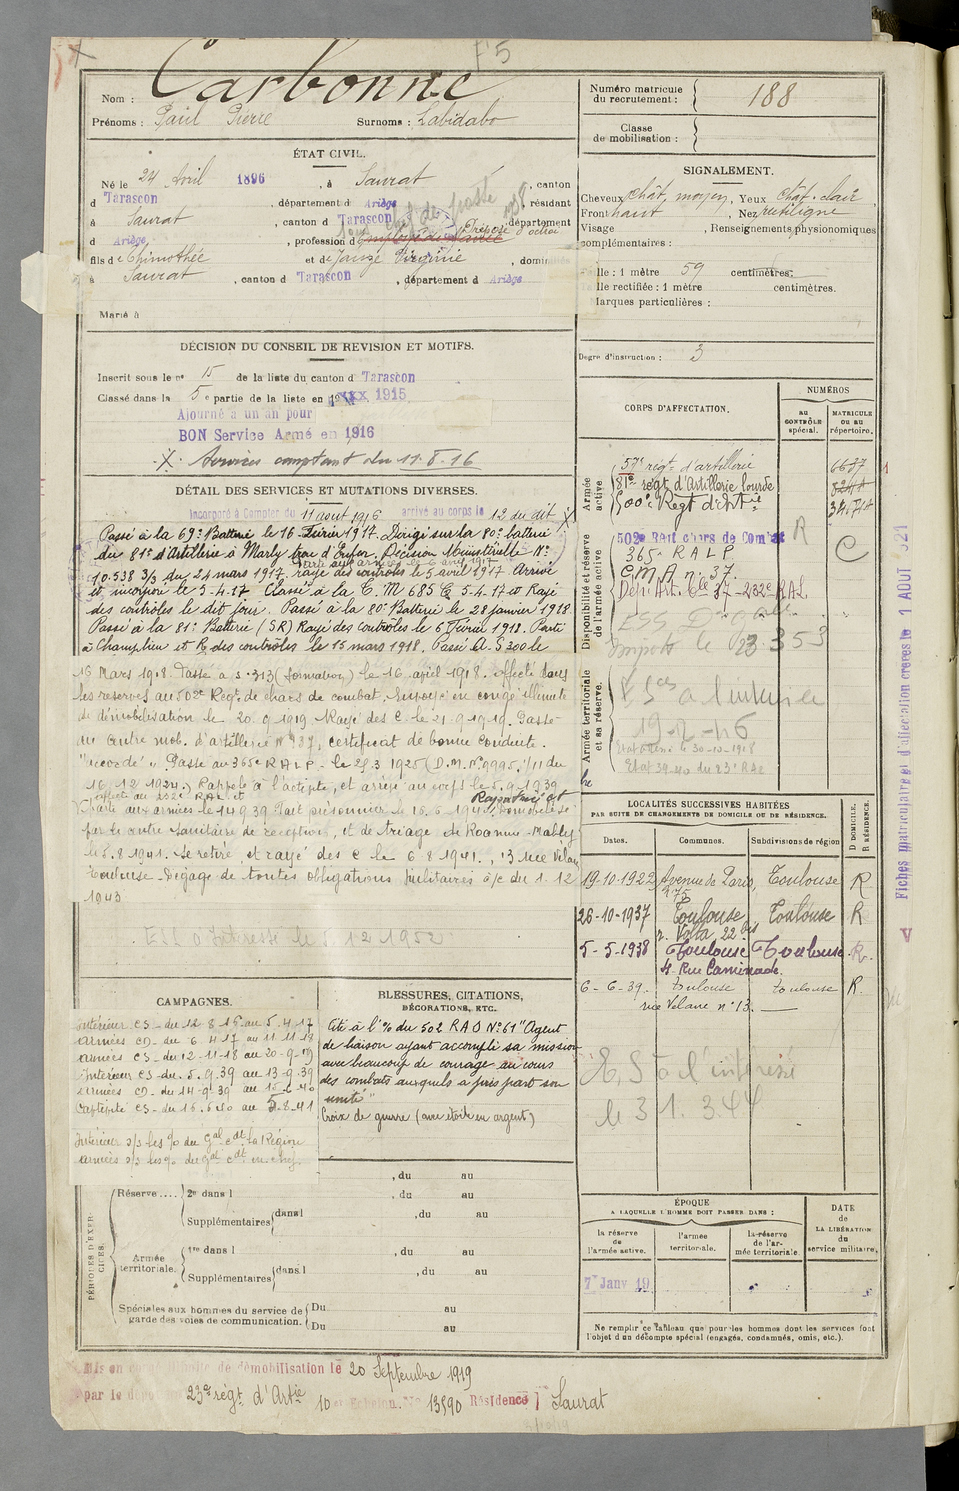 Nom : Carbonne
Prénoms : Paul Pierre Surnoms : Labidabo
Numéro matricule du recrutement : 188
Classe de mobilisation :
ÉTAT CIVIL.
Né le 24 Avril 1896, à Saurat, canton
d Tarascon, département d Ariège, résidant
à Saurat, canton d Tarascon, département
d Ariège, profession d
fils de Thimothée et de Virginie, domicilié
à Saurat, canton d Tarascon, département d Ariège
Marié à
SIGNALEMENT.
Cheveux chât. moyen, Yeux chât. clair
Front haut, Nez rectiligne
Visage, Renseignements physionomiques
complémentaires :
Taille : 1 mètre 59 centimètres.
Taille rectifiée : 1 mètre centimètres.
Marques particulières :
Degré d'instruction : 3
DÉCISION DU CONSEIL DE REVISION ET MOTIFS.
Inscrit sous le n° 15 de la liste du canton d Tarascon
Classé dans la 5e partie de la liste en 1915
Ajourné à un an pour
BON Service Armé en 1916
Services comptant du 11-8-16
DÉTAIL DES SERVICES ET MUTATIONS DIVERSES.
Incorporé à Compter du 11 août 1916 arrivé au corps le 12 du dit
Passé à la 69e Batterie le 16 Février 1917. Dirigé sur la 80e batterie
du 81e d'Artillerie à Marly trou d'Enfer. Décision Ministérielle N°
10.538 3/3 du 24 mars 1917 rayé des contrôles le 5 avril 1917 Arrivé
et incorporé le 5-4-17 Classé à la C. M 685 le 5-4-17 et Rayé
des contrôles le dit jour. Passé à la 80e Batterie le 28 janvier 1918.
Passé à la 81e Batterie (SR) Rayé des contrôles le 6 Février 1918. Parti
à Champlieu et R des contrôles le 15 mars 1918. Passé A.S 300 le
16 Mars 1918. Passé à S. 313 (formation) le 16 april 1918. affecté dans
les reserves au 502e Regt de chars de combat. Renvoyé en congé illimité
de démobilisation le 20.9.1919 Rayé des C le 21-9-1919. Passé
au centre mob. d'artillerie N° 37, certificat de bonne conduite
"accordé". Passé au 365e R A L P. le 25.3 1925 (D.M. N° 9995. 1/11 du
16.12 1924.) Rappelé à l'activité, et arrivé au corps le 5.9.1939
affecté au 232e R.A.L et
Parti aux armées le 14 9 39 Fait prisonnier le 15.6 1940, Rapatrié et démobilisé
par le centre sanitaire de réception, et de triage de Roanne-Mably
le 5.8 1941. Se retire, et rayé des c le 6 8 1941., 13 rue Velane
Toulouse. Dégagé de toutes obligations militaires à/c du 1. 12
1943
ESS à l'intéressé le 5 12 1952
CORPS D'AFFECTATION.
NUMÉROS
au CONTRÔLE spécial.
MATRICULE ou au répertoire.
Armée active
57e régt d'artillerie 6637
81e régt d'Artillerie lourde
500e Régt d'Artie
Disponibilité et réserve de l'armée active
502e Régt chars de Combat R
365e R A L P C
C M A n° 37.
Dépôt Art. 37 - 232e RAL
Armée territoriale et sa réserve.
19-2-46
LOCALITÉS SUCCESSIVES HABITÉES
PAR SUITE DE CHANGEMENTS DE DOMICILE OU DE RÉSIDENCE.
Dates. Communes. Subdivisions de région D DOMICILE. R RÉSIDENCE.
19-10-1922 Avenue de Paris, 175 Toulouse R
26-10-1937 Toulouse r. Volta 22 bis Toulouse R
5-5-1938 Toulouse 4 Rue Caminade. Toulouse R.
6-6-39. toulouse rue Velane n° 13. toulouse R.
à l'intéressé
le 31.3.44
CAMPAGNES.
Intérieur CS - du 12 8 16 au 5.4.17
Armées CD - du 6 4.17 au 11-11-18
Armées CS - du 12-11-18 au 20-9-19
Intérieur CS - du 5.9.39 au 13-9-39
Armées CD - du 14-9-39 au 15-6-40
Captivité CS - du 16-6-40 au 5-8-41
Intérieur s/s les °/o du Gal Cdt la Région
Armées s/s les °/o du Gal Cdt en chef
BLESSURES, CITATIONS, DÉCORATIONS, ETC.
Cité à l'°/o du 502 R A S N° 61 "Agent
de liaison ayant accompli sa mission
avec beaucoup de courage au cours
des combats auxquels a pris part son
unité"
Croix de guerre (avec étoile en argent)
PÉRIODES D'EXERCICES.
, du au
Réserve.... 2e dans l , du au
Supplémentaires dans l , du au
Armée territoriale. 1re dans l , du au
Supplémentaires dans l , du au
Spéciales aux hommes du service de garde des voies de communication. Du au
Du au
ÉPOQUE
A LAQUELLE L'HOMME DOIT PASSER DANS :
la réserve de l'armée active. l'armée territoriale. la réserve de l'armée territoriale.
DATE de LA LIBÉRATION du service militaire.
7 Janv 19
Ne remplir ce tableau que pour les hommes dont les services font
l'objet d'un décompte spécial (engagés, condamnés, omis, etc.).
Mis en congé illimité de démobilisation le 20 Septembre 1919
par le dépôt 23e régt d'Artie 10e Echelon. N° 13590 Résidence Saurat